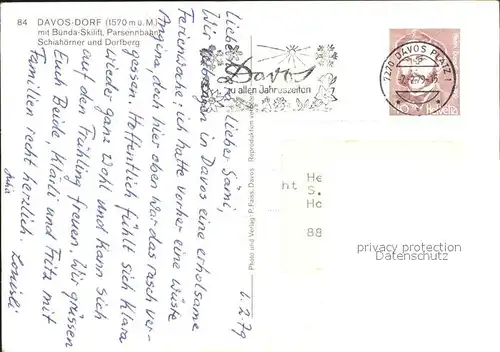 84 DAVOS-DORF (1570 m ü. M.)
mit Bünda-Skilift, Parsennbahn,
Schiahörner und Dorfberg
Davos
zu allen Jahreszeiten
7270 DAVOS PLATZ 1
Helvetia
6.2.79
lieber Sami,
Wir verbringen in Davos eine erholsame
Ferienwoche; ich hatte vorher eine wüste
Angina, doch hier oben war das rasch ver-
gessen. Hoffentlich fühlt sich Klara
wieder ganz wohl und kann sich
auf den Frühling freuen. Wir grüssen
Euch Beide, Klärli und Fritz mit
Familien recht herzlich.
Photo und Verlag: P. Faiss, Davos
He
ht S.
Ho
88
privacy protection
Datenschutz